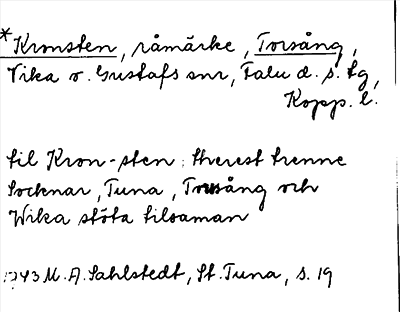 *Kronsten, råmärke, Torsång,
Vika o. Gustafs snr, Falu d. s. tg,
Kopp. l.
til Kron-sten; therest trenne
Socknar, Tuna, Torsång och
Wika stöta tilsaman
1743 M. A. Sahlstedt, St. Tuna, s. 19